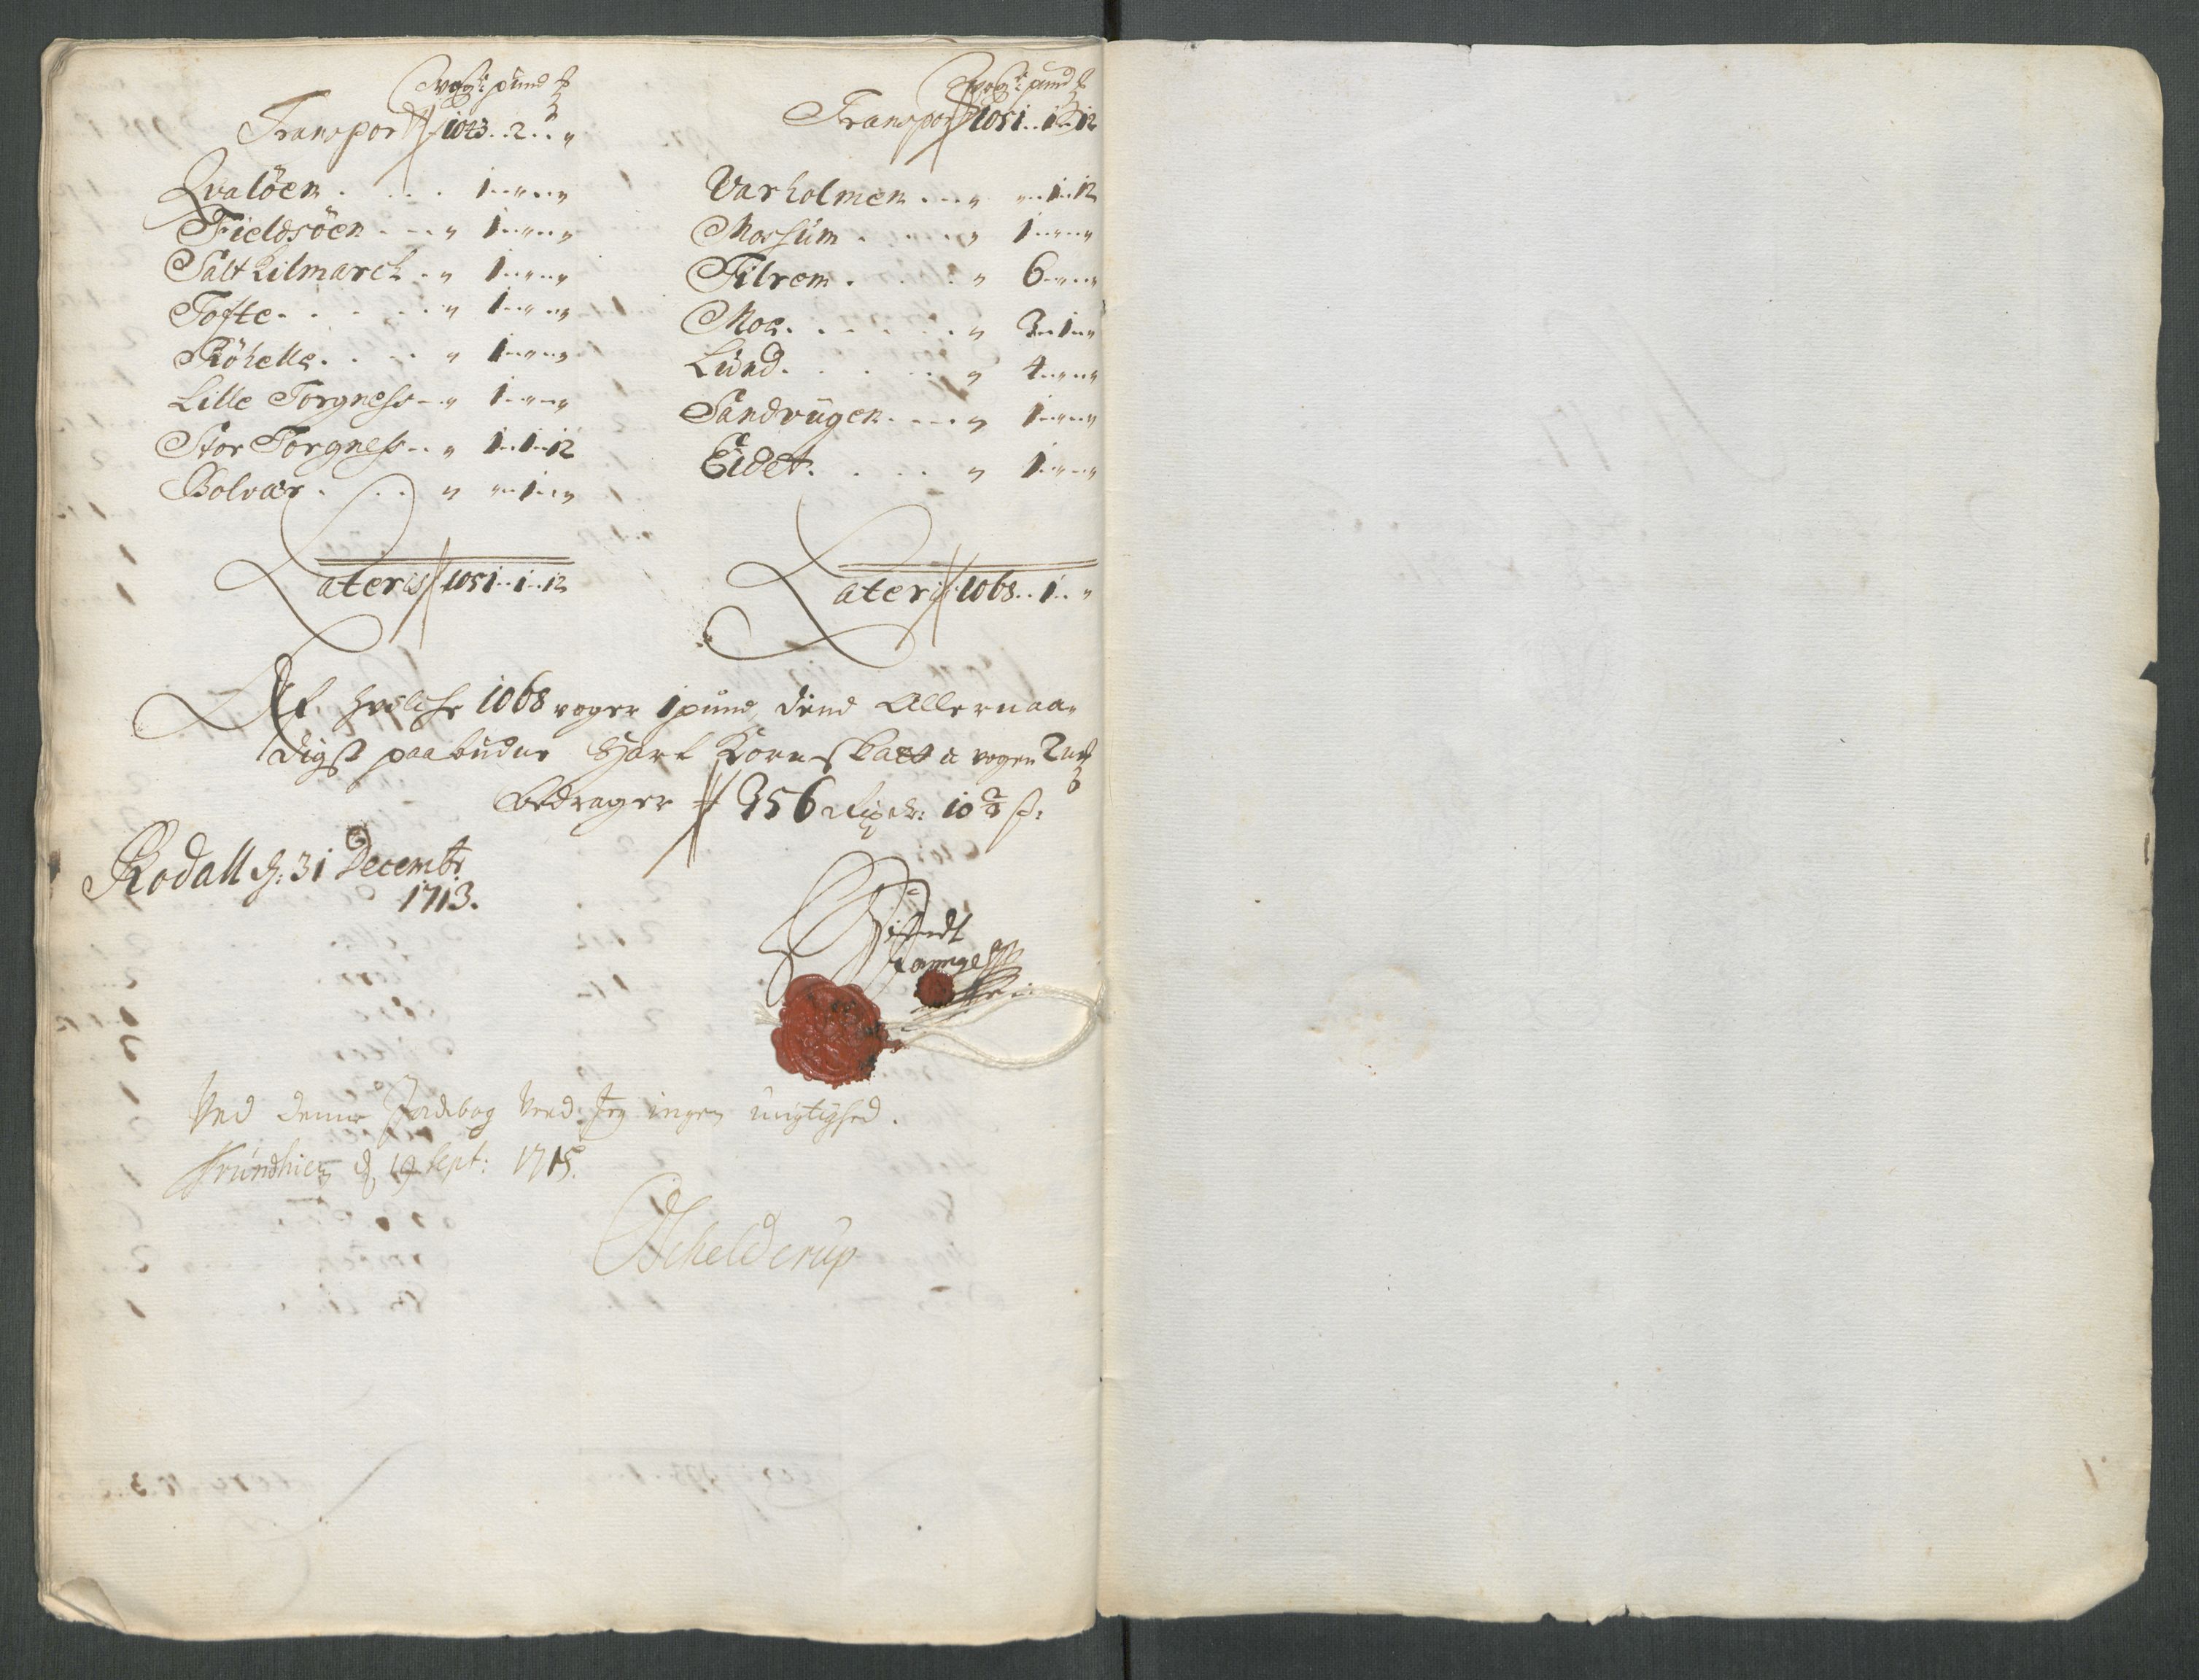 Wog: pund
Transport 1043..2.."
Qvalöen.... 1..."..."
Fieldsöen..." 1..."..."
Salt Kilmarch.." 1..."..."
Tofte......" 1..."..."
Röhelle....." 1..."..."
Lille Torgness.." 1..."..."
Stor Torgness..." 1..1..12
Bolvær...." "..1.."
Lateris 1051..1..12
Wog: pund
Transport 1051..1..12
Varholmen..." "..1..12
Morsum......" 1..."..."
Tilrem....." 6..."..."
Moe......" 3..1.."
Lund......" 4..."..."
Sandvugen...." 1..."..."
Eidet....." 1..."..."
Lateris 1068..1.."
Af hvilche 1068 woger 1 pund dend Allernaa-
digst paabudne Hart Kornskatt a wogen 2
bedrager 356 10
Rodall d: 31 Decembr
1713.
Ved denne Jordebog Veed Jeg ingen urigtighed.
Trundhiem d 19 Sept: 1715.
Schelderup